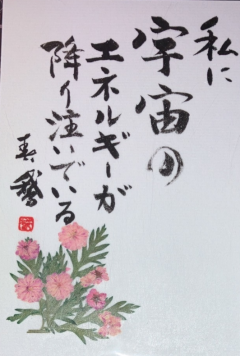 私に
宇宙の
エネルギーが
降り注いでいる